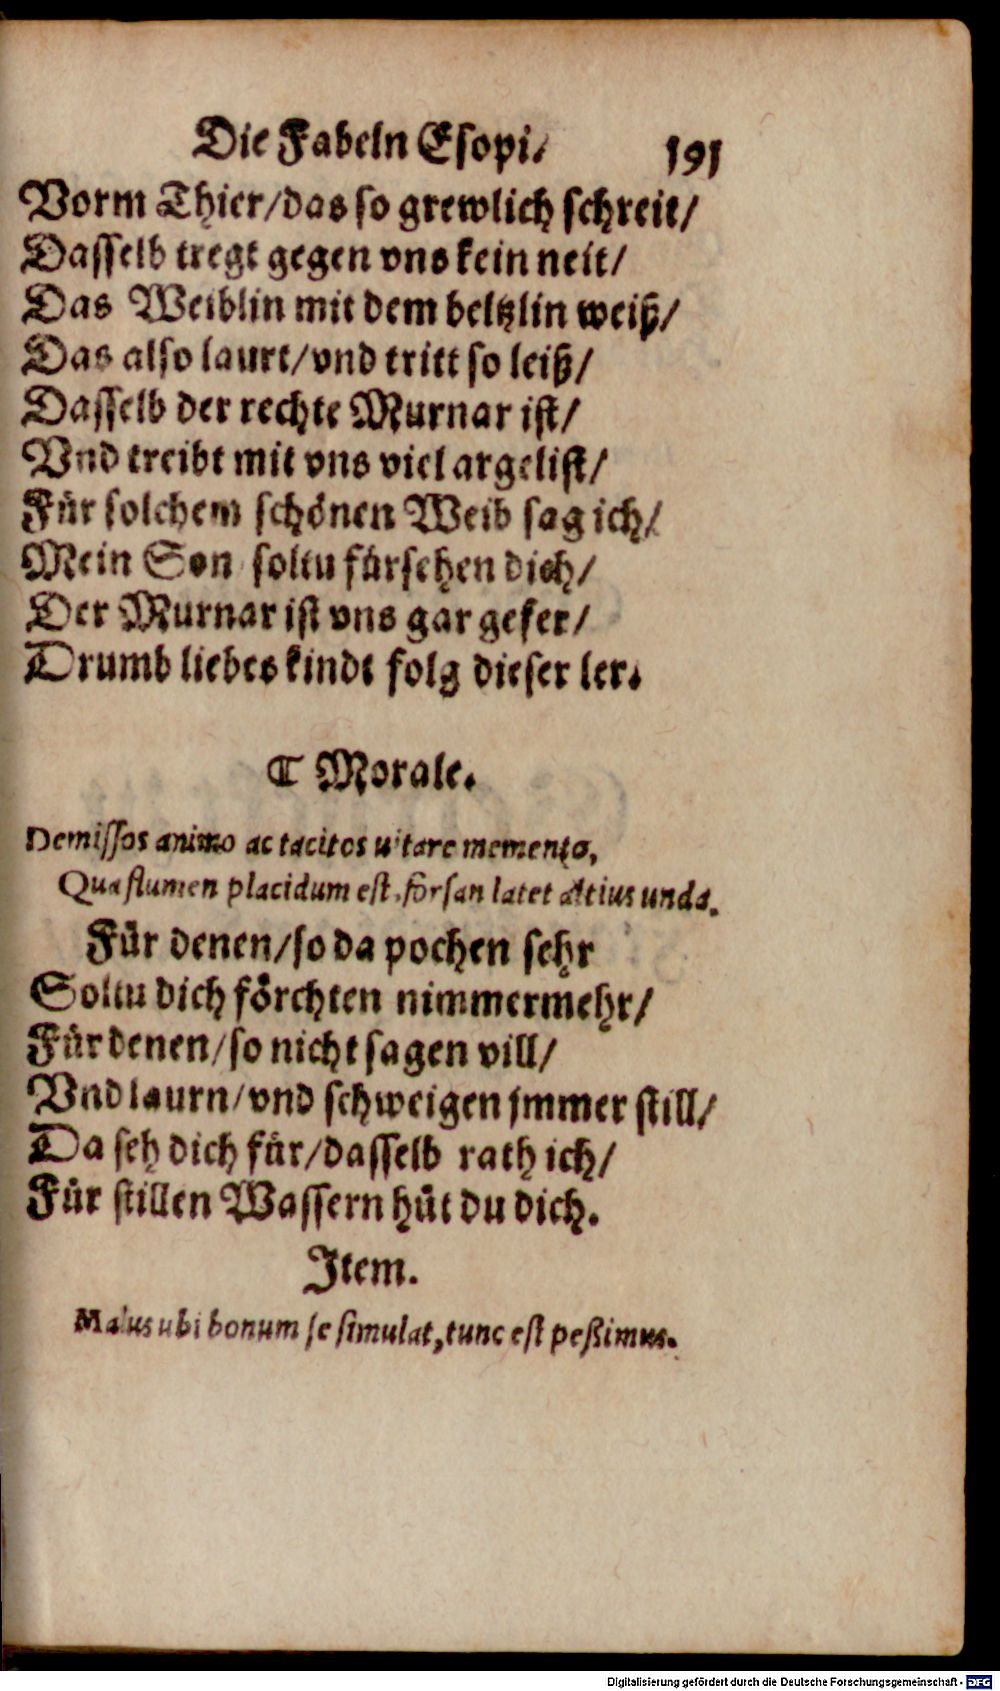 Die Fabeln Esopi/ 191
Vorm Thier/das so grewlich schreit/
Dasselb tregt gegen vns kein neit/
Das Weiblin mit dem beltzlin weiß/
Das also laurt/vnd tritt so leiß/
Dasselb der rechte Murnar ist/
Vnd treibt mit vns viel argelist/
Für solchem schönen Weib sag ich/
Mein Son soltu fürsehen dich/
Der Murnar ist vns gar gefer/
Drumb liebes kindt folg dieser ler.
¶ Morale.
Demissos animo ac tacitos uitare memento,
Qua flumen placidum est, forsan latet altius unda.
Für denen/so da pochen sehr
Soltu dich förchten nimmermehr/
Für denen/so nicht sagen vill/
Vnd laurn/vnd schweigen jmmer still/
Da seh dich für/dasselb rath ich/
Für stillen Wassern hüt du dich.
Item.
Malus ubi bonum se simulat, tunc est peßimus.
Digitalisierung gefördert durch die Deutsche Forschungsgemeinschaft - DFG